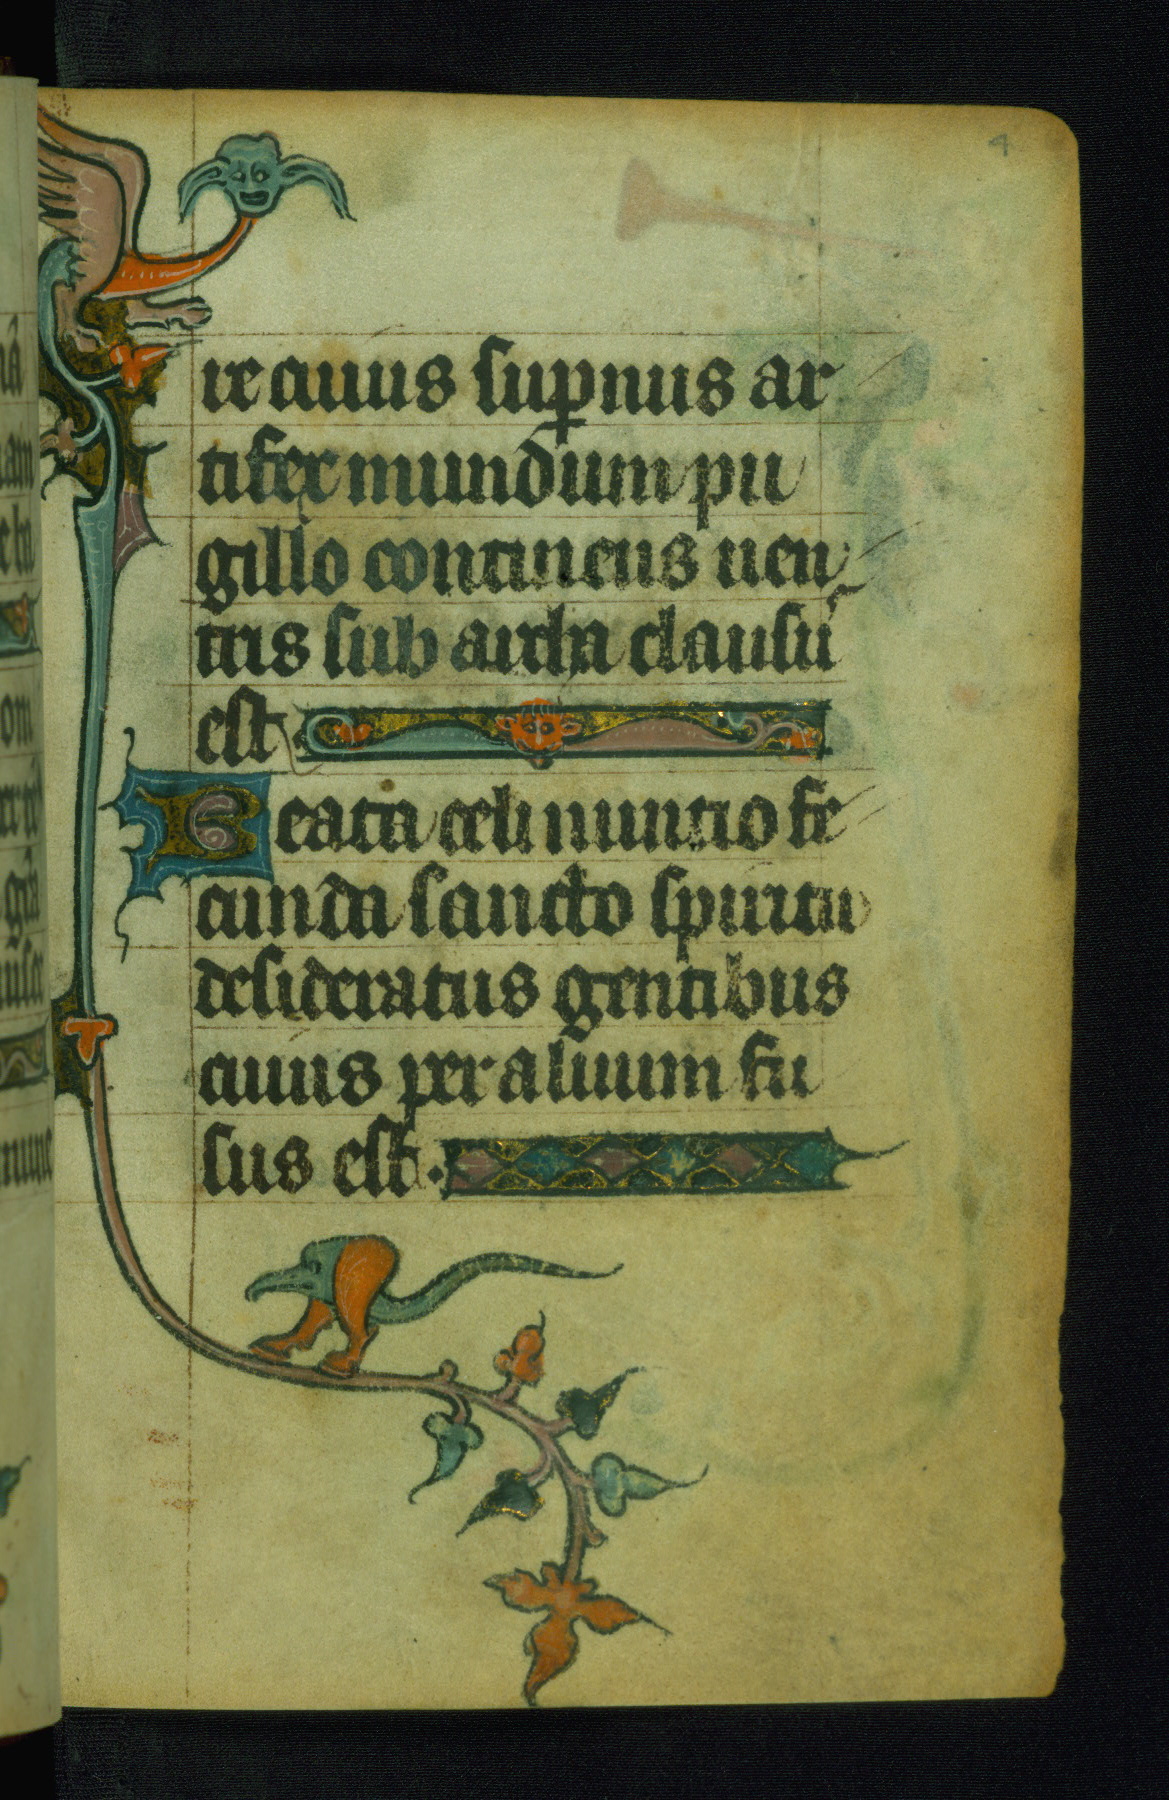 4
re cuius sup̲nus ar
tifex mundum pu
gillo continens uen
tris sub archa clausu
est
Beata celi nuntio fe
cunda sancto spiritu
desideratus gentibus
cuius per aluum fu
sus est.